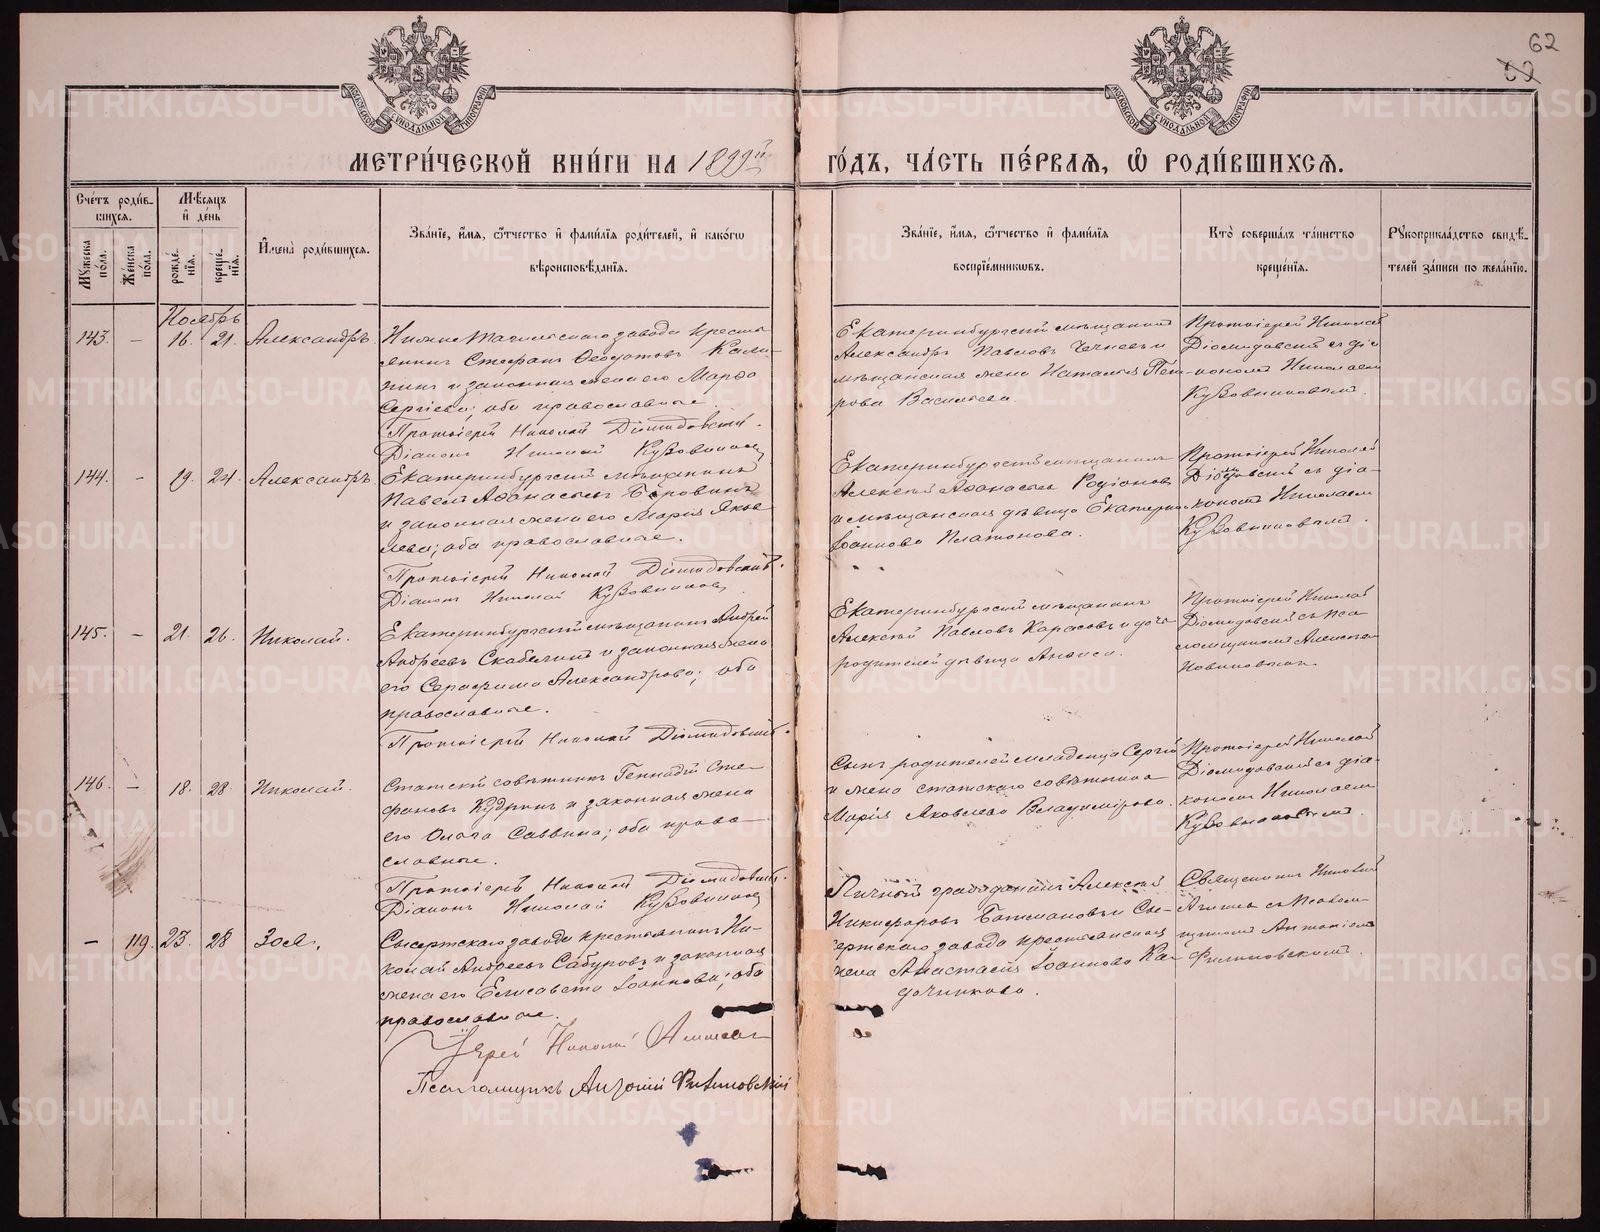 62
МЕТРИ́ЧЕСКОЙ КНИ́ГИ НА 1899й ГО́ДЪ, ЧА́СТЬ ПЕ́РВАЯ, Ѡ҆ РОДИ́ВШИХСЯ.
Сче́тъ роди́в-
шихся.
Мѣ́сяцъ
и҆ де́нь
Му́жеска по́ла.
Же́нска по́ла.
рожде́нїя.
креще́нїя.
И҆мена̀ роди́вшихся.
Зва́нїе, и҆́мя, ѻ҆́тчество и҆ фами́лїя роди́телей, и҆ како́гѡ
вѣроисповѣ́данїя.
Зва́нїе, и҆́мя, ѻ҆́тчество и҆ фами́лїя
воспрїе́мниковъ.
Кто̀ соверша́лъ та́инство
креще́нїя.
Рꙋкоприкла́дство свидѣ́-
телей за́писи по жела́нїю.
Ноябрь
143. — 16. 21. Александръ.
Нижне Тагильскаго завода кресть
янинъ Стефанъ Ѳедотовъ Кали-
нин и законная жена его Марѳа
Сергіева; оба православные.
Протоіерей Николай Діомидовскій.
Діаконъ Николай Кузовниковъ
Екатеринбургскій мѣщанинъ
Александръ Павловъ и
мѣщанская жена Наталья Пет-
рова Васильева.
Протоіерей Николай
Діомидовскій съ діа
кономъ Николаем
Кузовниковымъ.
144. — 19. 24. Александръ
Екатеринбургскій мѣщанинъ
Павелъ Аѳанасьевъ Боровинъ
и законная жена его Марія Яков
лева; оба православные.
Протоіерей Николай Діомидовскій.
Діаконъ Николай Кузовниковъ
Екатеринбургскій мѣщанинъ
Алексѣй Аѳанасьевъ Родіоновъ
и мѣщанская дѣвица Екатерина
Іоаннова Платонова.
Протоіерей Николай
Діомидовскій съ діа-
кономъ Николаем
Кузовниковымъ.
145. — 21. 26. Николай.
Екатеринбургскій мѣщанинъ Андрей
Андреевъ Скабелин и законная жена
его Серафима Александрова; оба
православные.
Протоіерей Николай Діомидовскій.
Екатеринбургскій мѣщанинъ
Алексѣй Павловъ Карасовъ и дочь
родителей дѣвица Анфиса.
Протоіерей Николай
Діомидовскій съ пса
ломщикомъ Алексѣем
Новиковымъ
146. — 18. 28. Николай.
Статскій совѣтникъ Геннадій Сте-
фановъ Кудринъ и законная жена
его Ольга Саввина; оба право-
славные.
Протоіерей Николай Діомидовскій.
Діаконъ Николай Кузовниковъ
Сынъ родителей младенца Сергій
и жена статскаго совѣтника
Марія Яковлева Владимірова.
Протоіерей Николай
Діомидовскій съ діа-
кономъ Николаем
Кузовниковымъ.
— 119. 23. 28 Зоя.
Сысертскаго завода крестьянинъ Ни-
колай Андреевъ Сабуровъ и законная
жена его Елисавета Іоаннова; оба
православные.
Іерей Николай
Псаломщикъ Антоній Филиновскій
Личный гражданинъ Алексѣй
Никифоровъ Батмановъ и Сы-
сертскаго завода крестьянская
жена Анастасія Іоаннова Ка-
дочникова.
Священникъ Николай
съ псалом-
щикомъ Антоніемъ
Филиновскимъ.
METRIKI.GASO-URAL.RU